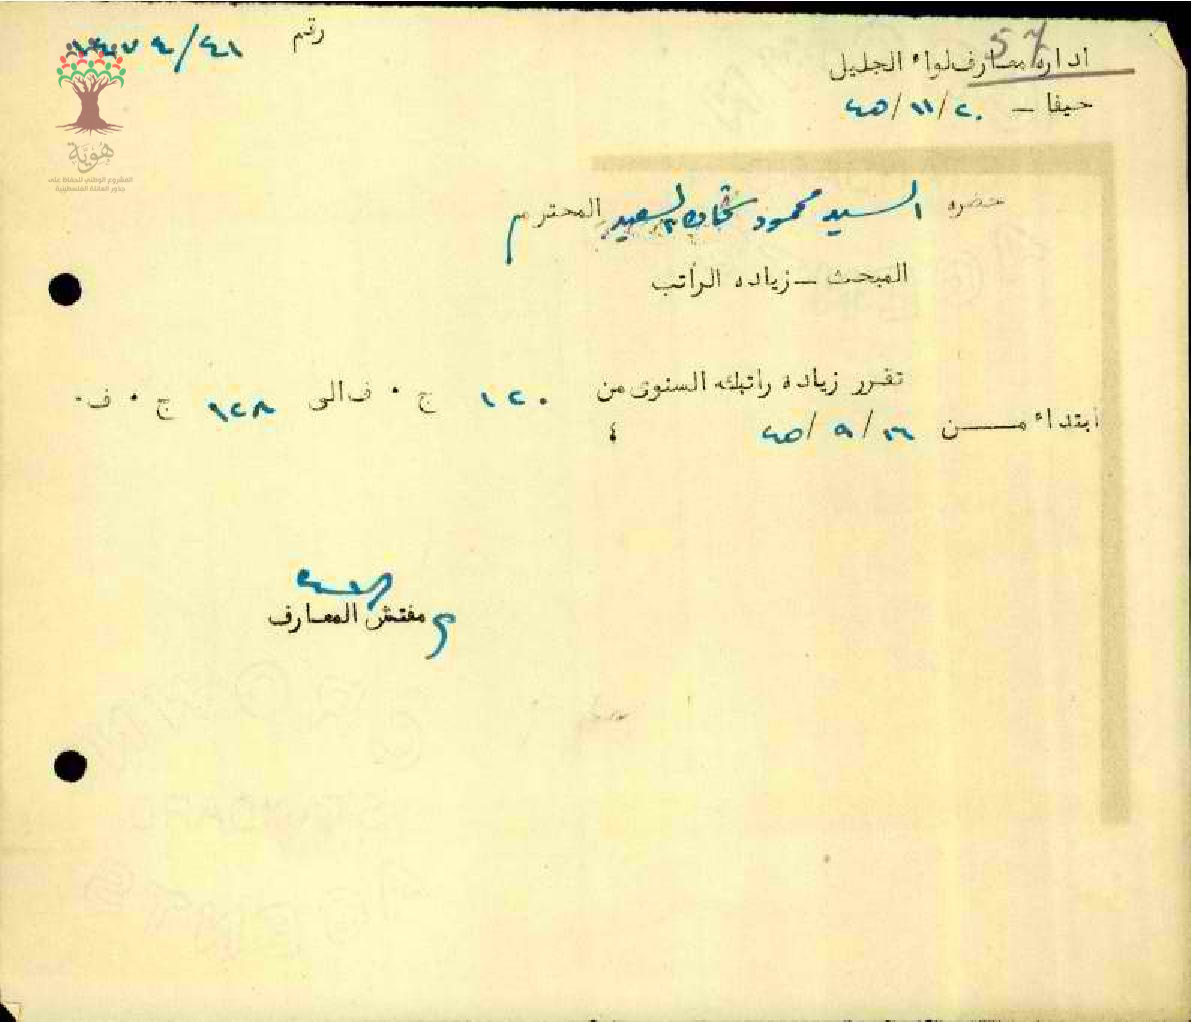 57
ادارة معارف لواء الجليل
رقم ٤١/
حيفا — ٤٥/١١/٢٠
هُوِيَّة
المشروع الوطني للحفاظ على
جذور العائلة الفلسطينية
حضرة السيد محمود شحاده السعيد المحترم
المبحث — زياده الراتب
تقرر زياده راتبك السنوى من ١٢٠ ج ٠ ف الى ١٢٨ ج ٠ ف٠
ابتداء من ٤٥/٩/١٦ ؛
مفتش المعارف